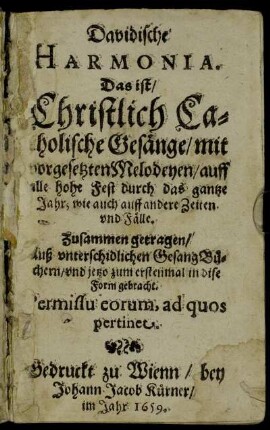 Davidische
HARMONIA.
Das ist/
Christlich Ca-
holische Gesänge/ mit
vorgesetzten Melodeyen/ auff
alle hohe Fest durch das gantze
Jahr, wie auch auff andere Zeiten
vnd Fälle.
Zusammen getragen/
Auß vnterschidlichen Gesang Bü-
chern/vnd jetzo zum erstenmal in dise
Form gebracht.
Permissu eorum, ad quos
pertinet.
Gedruckt zu Wienn / bey
Johann Jacob Kürner/
im Jahr 1659.